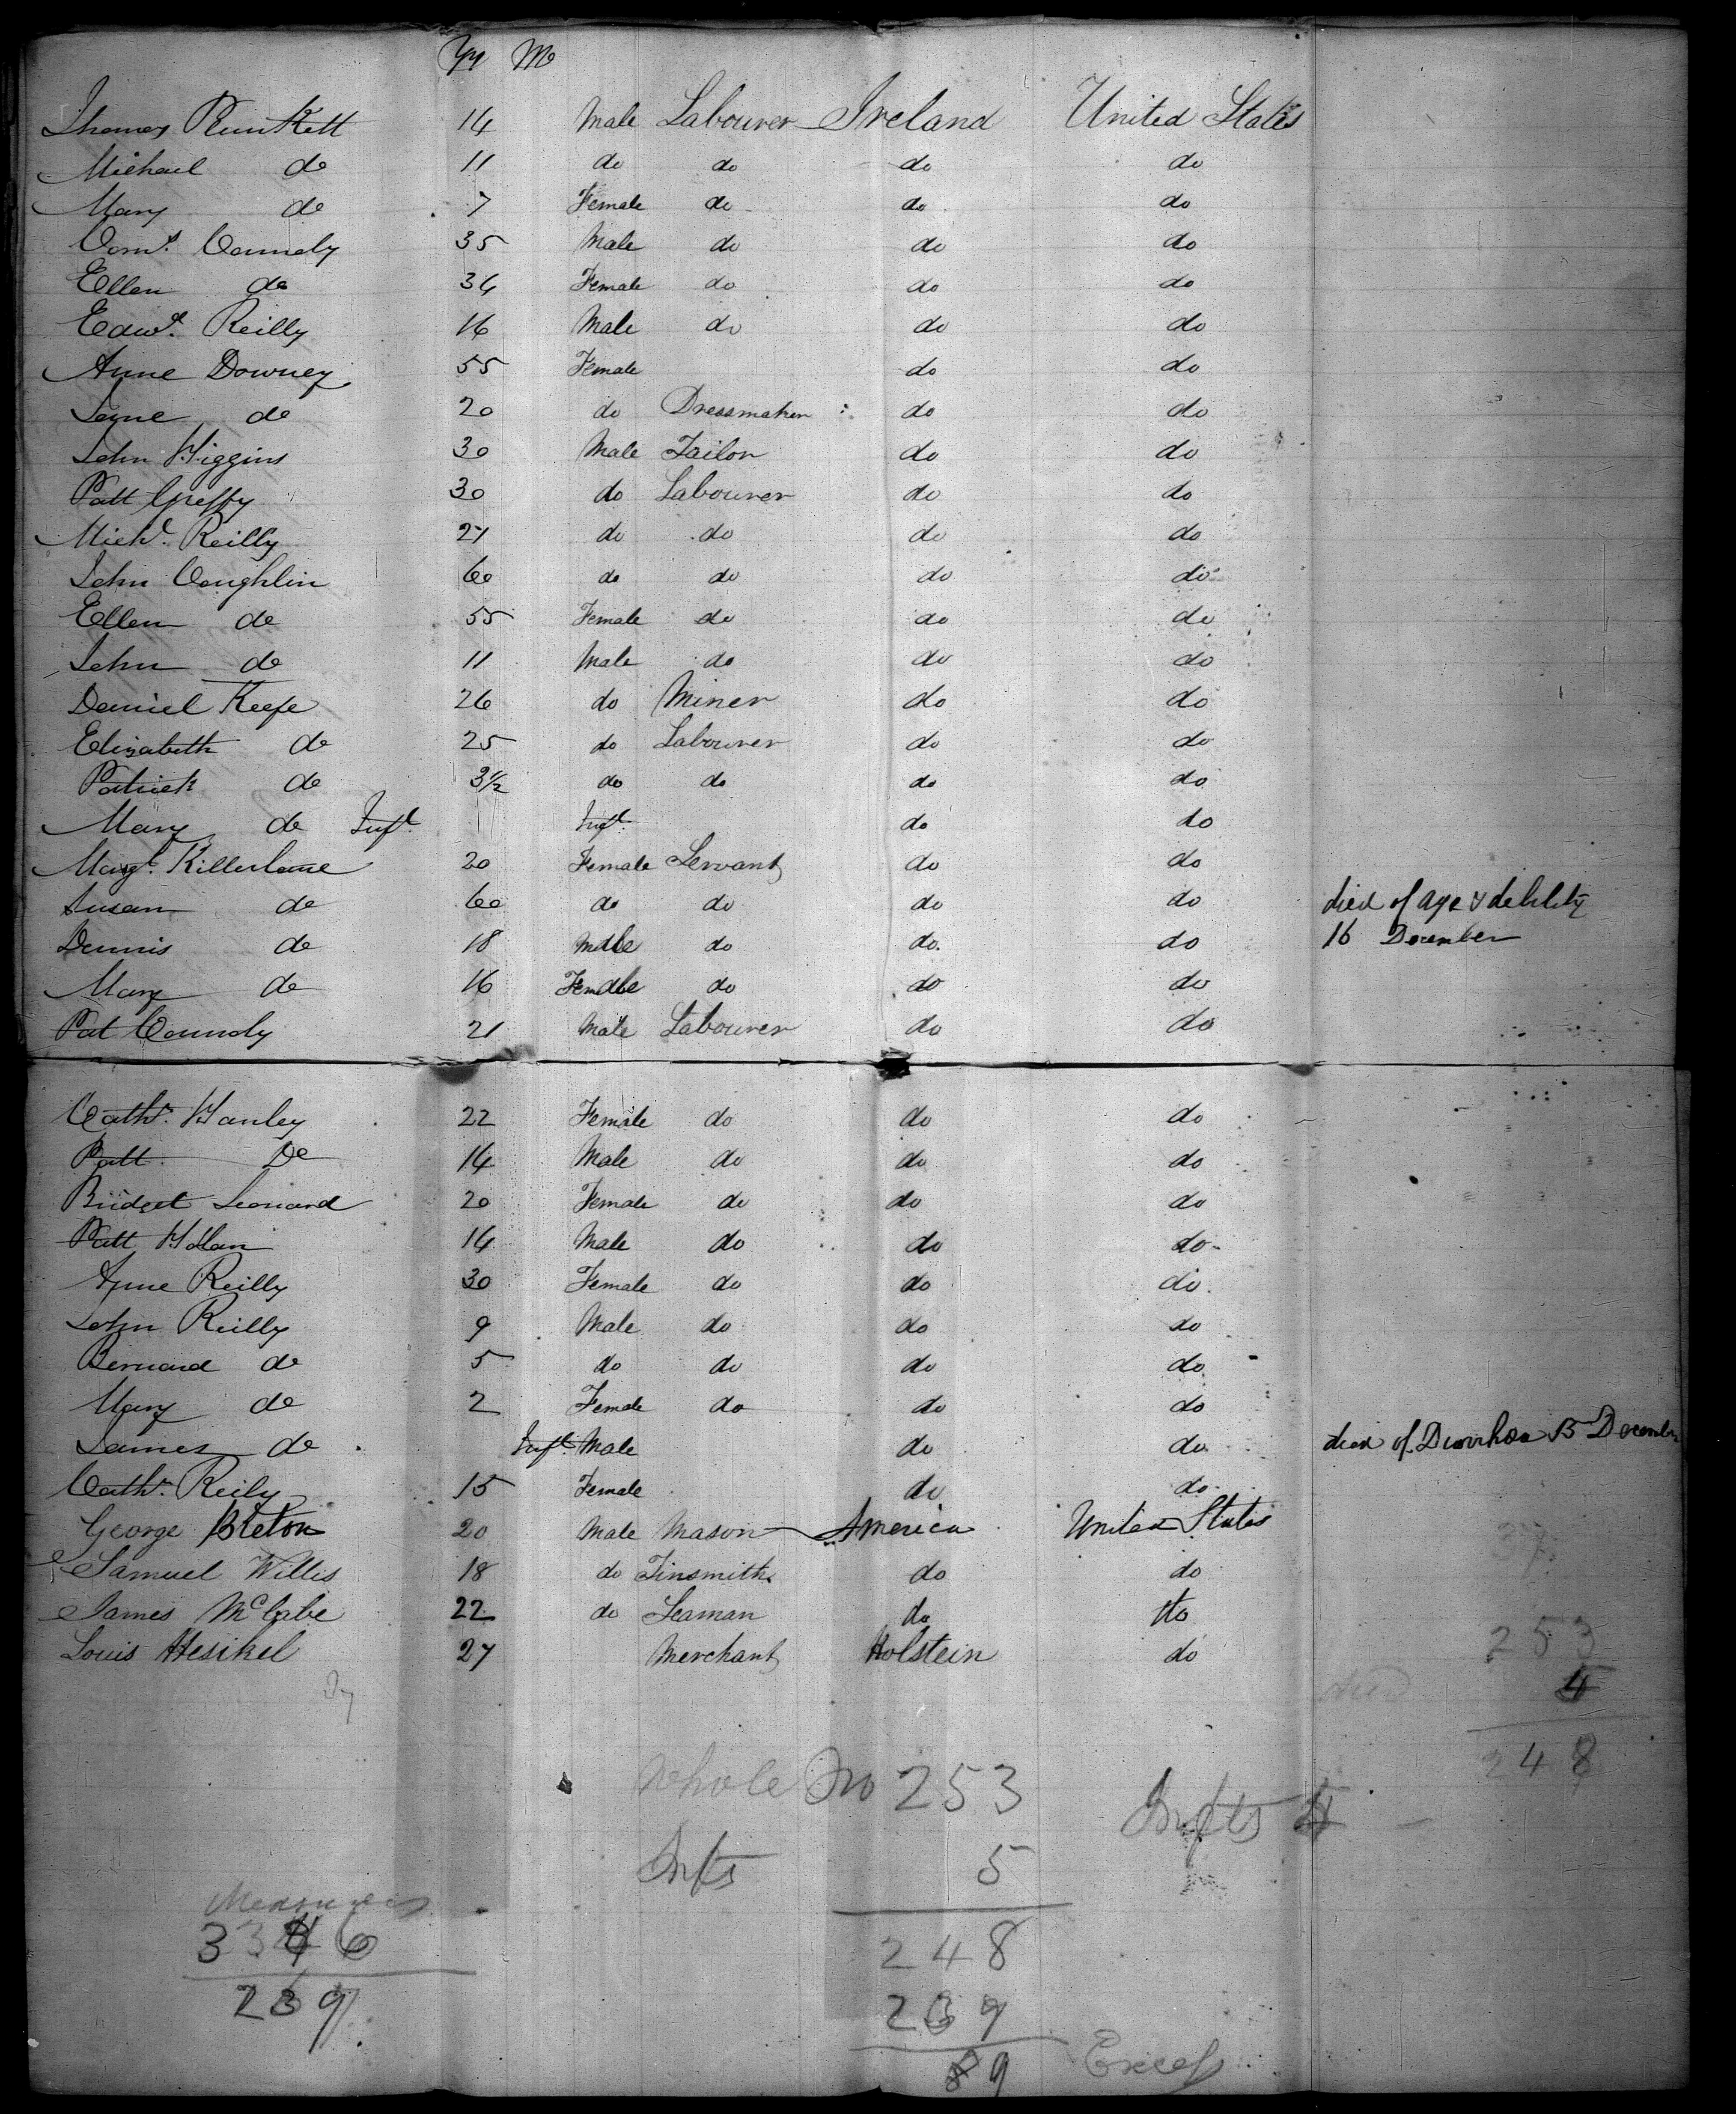 Yrs Mo
Thomas Plunkett 14 Male Labourer Ireland United States
Michael do 11 do do do do
Mary do 7 Female do do do
Corns. Connoly 35 Male do do do
Ellen do 34 Female do do do
Edwd. Reilly 16 Male do do do
Anne Downey 55 Female do do
Jane do 20 do Dressmaker do do
John Higgins 30 Male Tailor do do
Patt Greffy 30 do Labourer do do
Michl. Reilly 21 do do do do
John Coughlin 60 do do do do
Ellen do 55 Female do do do
John do 11 Male do do do
Daniel Keefe 26 do Miner do do
Elizabeth do 25 do Labourer do do
Patrick do 3½ do do do do
Mary do Inft. Inft. do do
Margt. Killerlane 20 Female Servant do do
Susan do 60 do do do do died of age & debility
Dennis do 18 Male do do do 16 December
Mary do 16 Female do do do
Pat Connoly 21 Male Labourer do do
Cathr. Hanley 22 Female do do do
Patt Do 14 Male do do do
Bridget Leonard 20 Female do do do
Patt 14 Male do do do
Anne Reilly 30 Female do do do
John Reilly 9 Male do do do
Bernard do 5 do do do do
Mary do 2 Female do do do
James do Inft. Male do do died of Diarrhoea 15 December
Cathr. Reily 15 Female do do
George Breton 20 Male Mason America United States
Samuel Willis 18 do Tinsmith do do
James McCabe 22 do Seaman do do
Louis Hesikel 27 Merchant Holstein do
37
253
died 4
248
Whole No 253
Infts 4
Infts 5
Measures
248
239
239
9 Excess